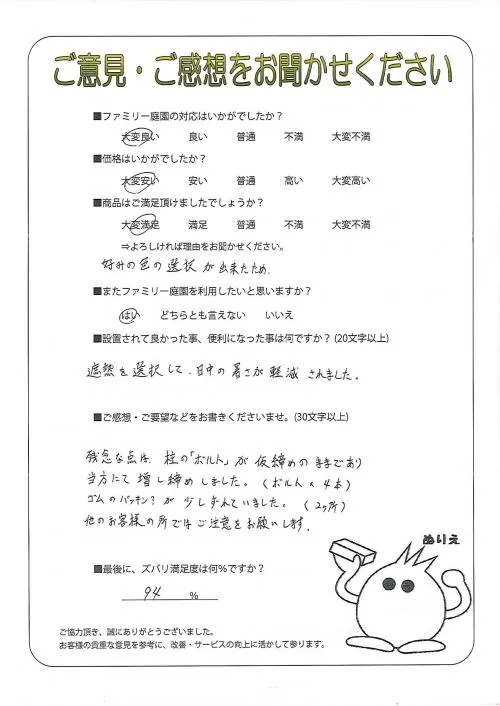 ご意見・ご感想をお聞かせください
■ファミリー庭園の対応はいかがでしたか？
大変良い 良い 普通 不満 大変不満
■価格はいかがでしたか？
大変安い 安い 普通 高い 大変高い
■商品はご満足頂けましたでしょうか？
大変満足 満足 普通 不満 大変不満
⇒よろしければ理由をお聞かせください。
好みの色の選択が出来たため.
■またファミリー庭園を利用したいと思いますか？
はい どちらとも言えない いいえ
■設置されて良かった事、便利になった事は何ですか？(20文字以上)
遮熱を選択して、日中の暑さが軽減されました。
■ご感想・ご要望などをお書きくださいませ。(30文字以上)
残念な点は、柱の「ボルト」が仮締めのままであり
当方にて増し締めしました。(ボルト×4本)
ゴムのパッキン？が少しずれていました。(2ヶ所)
他のお客様の所ではご注意をお願いします.
ぬりえ
■最後に、ズバリ満足度は何％ですか？
94 %
ご協力頂き、誠にありがとうございました。
お客様の貴重な意見を参考に、改善・サービスの向上に活かして参ります。